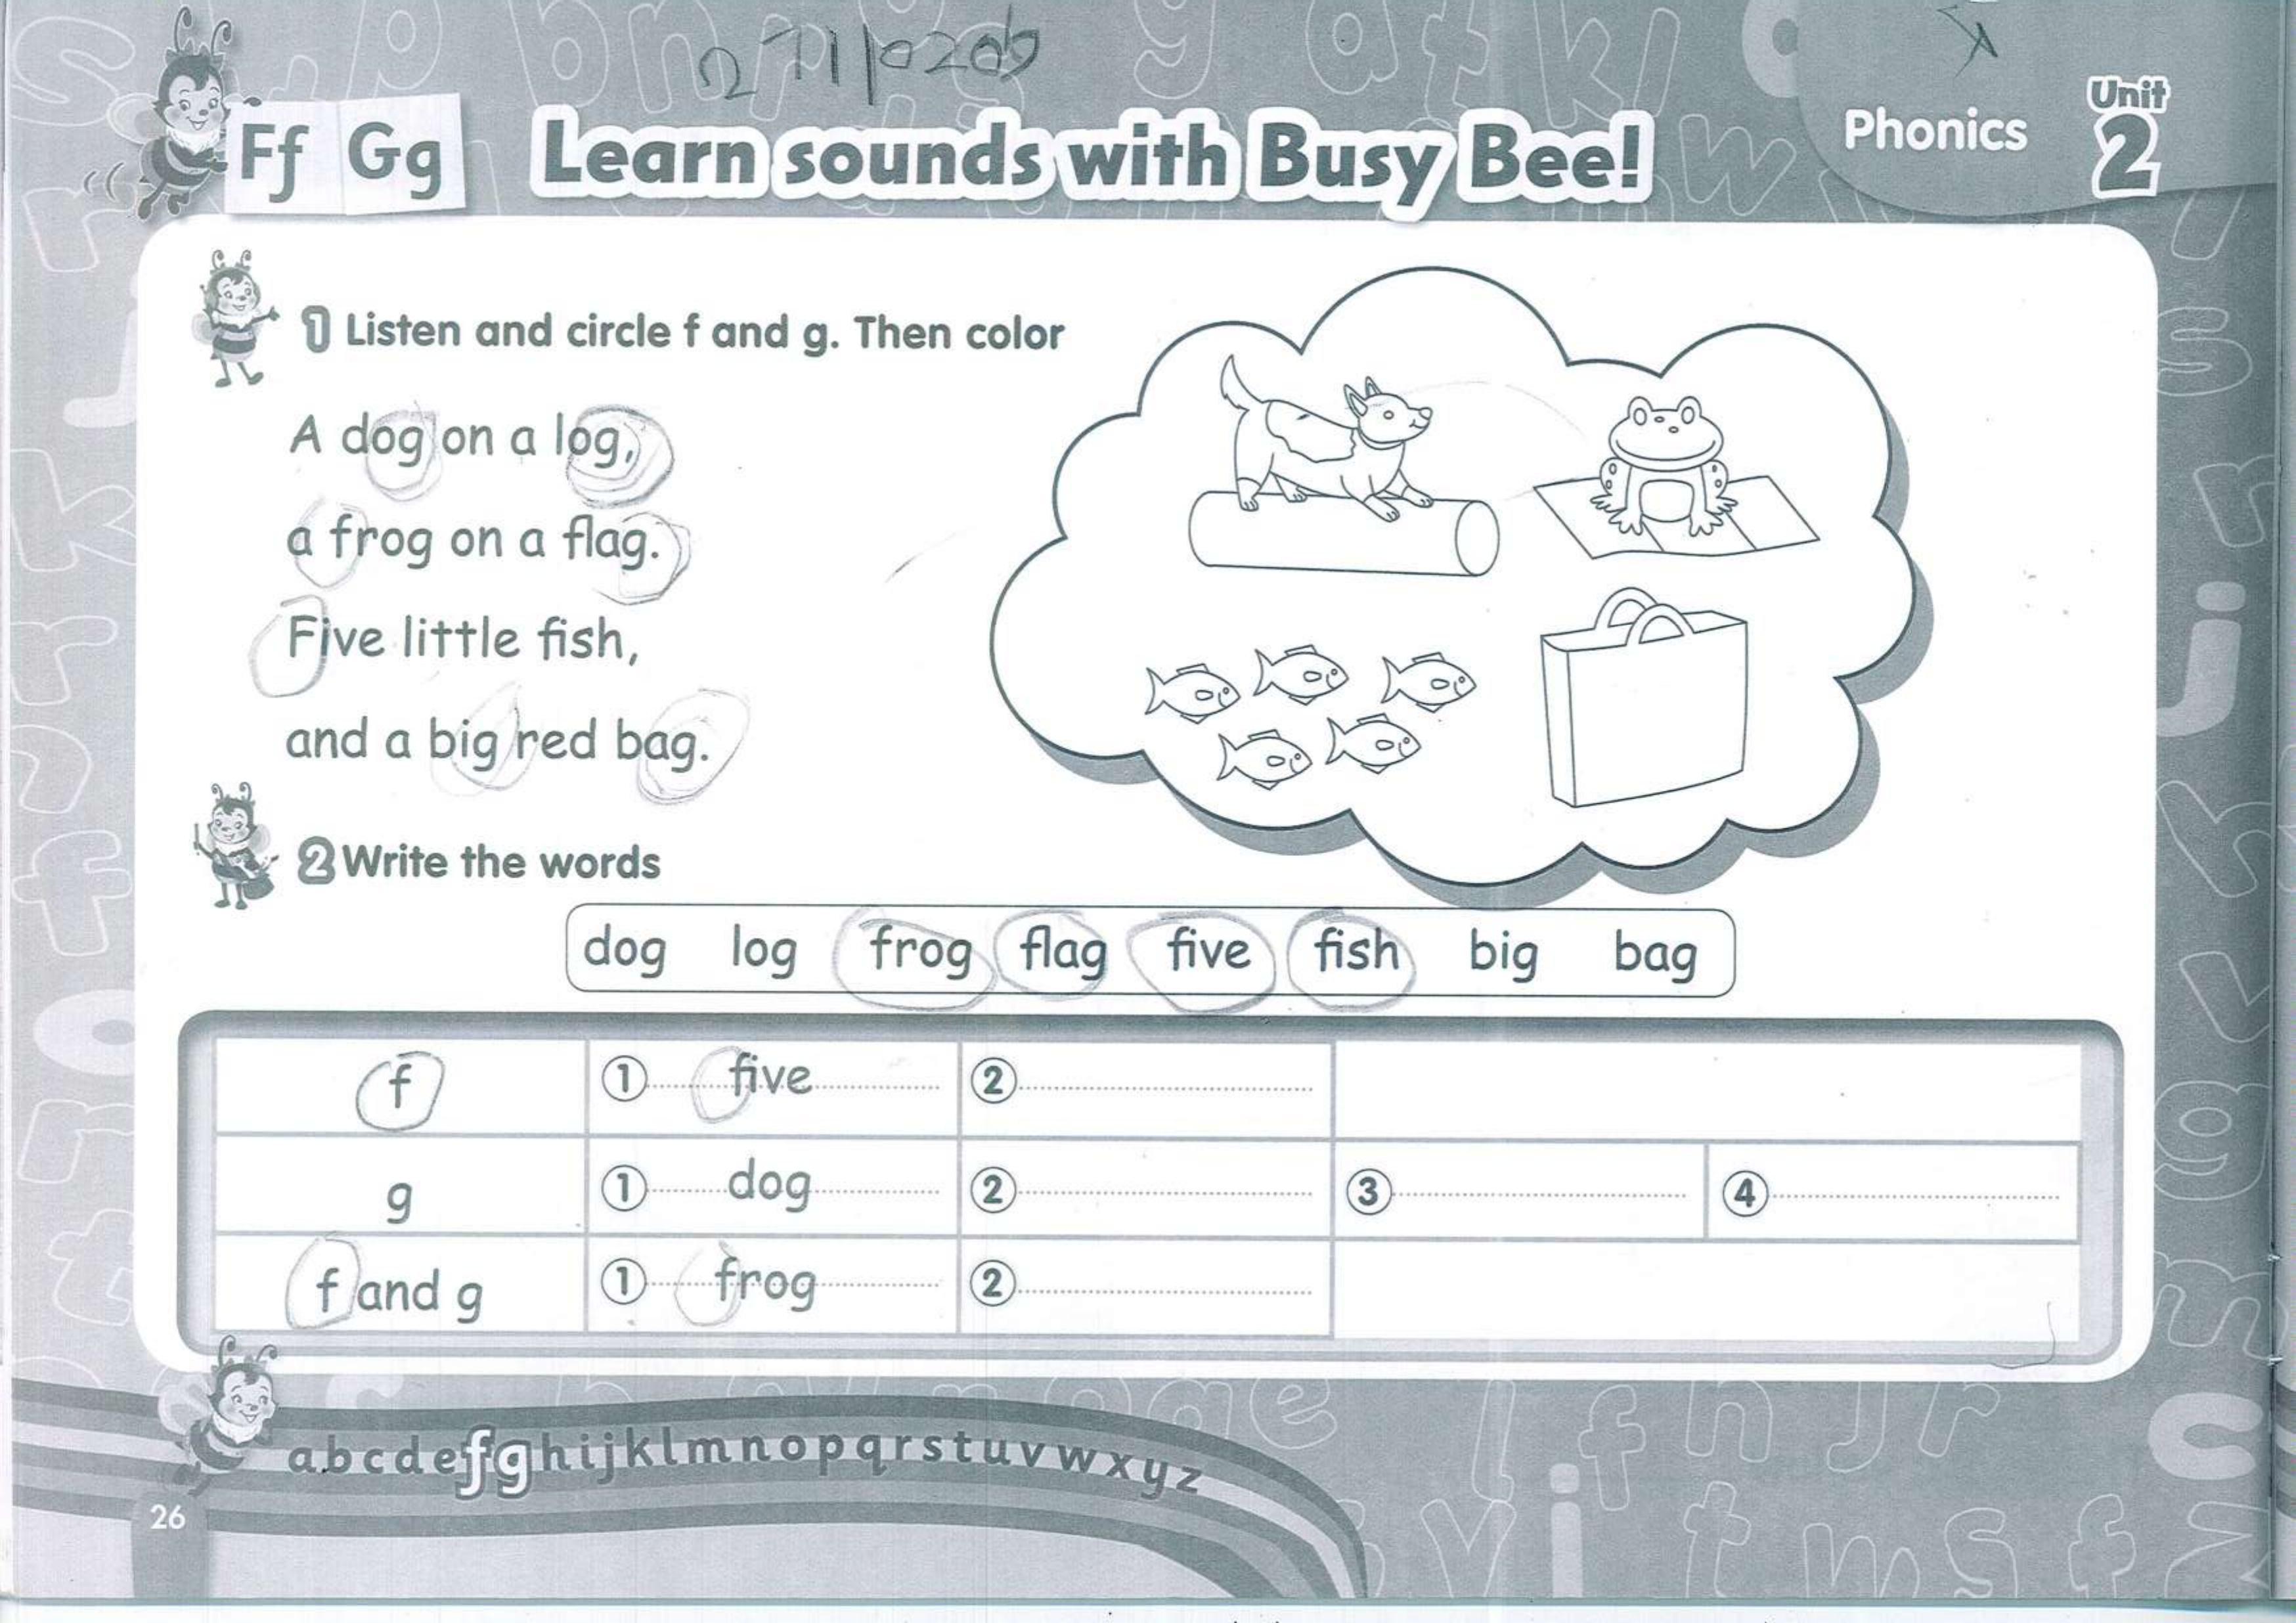 Ff Gg
Learn sounds with Busy Bee!
Phonics
Unit 2
1 Listen and circle f and g. Then color
A dog on a log,
a frog on a flag.
Five little fish,
and a big red bag.
2 Write the words
dog log frog flag five fish big bag
f 1 five 2
g 1 dog 2 3 4
f and g 1 frog 2
abcdefghijklmnopqrstuvwxyz
26